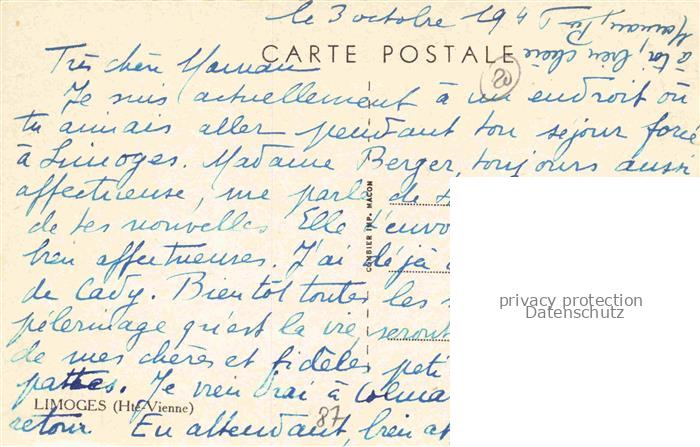 le 3 octobre 194
CARTE POSTALE
à toi, bien chère
Maman,
20
Très chère Maman
Je suis actuellement à un endroit où
tu aimais aller pendant ton séjour forcé
à Limoges. Madame Berger, toujours aussi
affectueuse, me parle de
de tes nouvelles Elle t'envo
bien affectueuses. J'ai déjà
de Cady. Bientôt toutes les
pèlerinage qu'est la vie, seront
de mes chères et fidèles peti
pattes. Je viendrai à Colma
retour. En attendant, bien af
COMBIER IMP. MACON
LIMOGES (Hte-Vienne)
87
privacy protection
Datenschutz